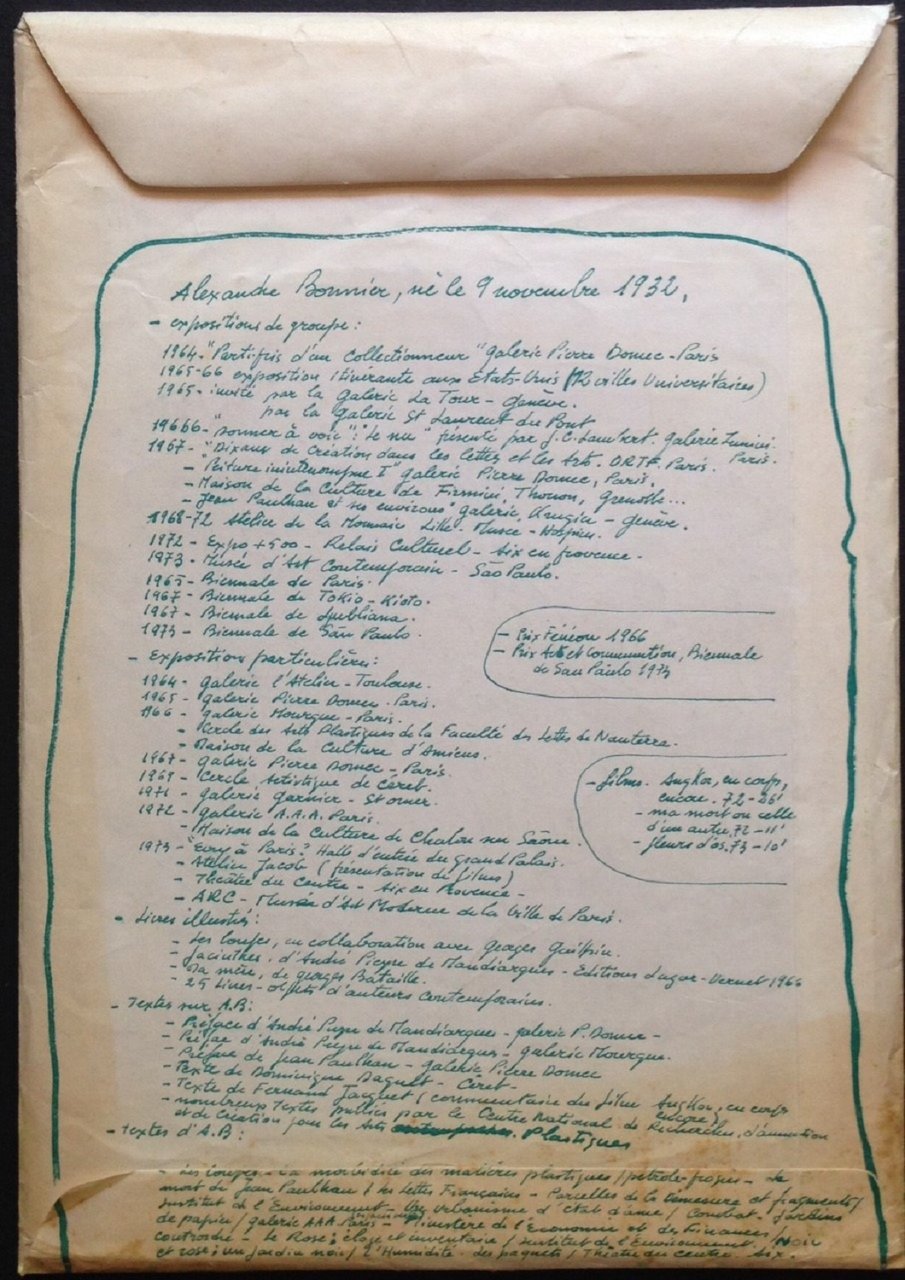 Alexandre Bonnier, né le 9 novembre 1932.
- expositions de groupe :
1964 - "Parti-pris d'un collectionneur" galerie Pierre Domec - Paris
1965-66 exposition itinérante aux Etats-Unis (12 villes Universitaires)
1965 - invité par la galerie La Tour - Genève.
par la galerie St Laurent du Pont
"donner à voir" : "le nu" présenté par J.C. Lambert. galerie Paris.
1967 - "Dix ans de Création dans les lettres et les Arts. ORTF. Paris.
- Peinture I" galerie Pierre Domec, Paris.
- Maison de la Culture de Firmini, Thonon, Grenoble...
- "Jean Paulhan et ses environs" galerie Krugier - Genève.
1968-72 Atelier de la Monnaie Lille - Musée - Hospice.
1972 - Expo +500 - Relais Culturel - Aix en provence.
1973 - Musée d'Art Contemporain - São Paulo.
1965 - Biennale de Paris.
1967 - Biennale de Tokio - Kioto.
1967 - Biennale de Ljubliana.
1973 - Biennale de São Paulo.
- Prix Fénéon 1966
- Prix Arts et Communication, Biennale
de San Paulo 1973
- Expositions particulières :
1964 - galerie l'Atelier - Toulouse.
1965 - galerie Pierre Domec - Paris.
1966 - galerie Mourgue - Paris.
- Cercle des Arts Plastiques de la Faculté des Lettres de Nanterre.
- Maison de la Culture d'Amiens.
1967 - galerie Pierre Domec - Paris.
1969 - Cercle Artistique de Céret.
1971 - galerie Garnier - St omer.
1972 - galerie A.A.A. Paris.
- Maison de la Culture de Chalon sur Saône.
1973 - "Evry à Paris" Hall d'entrée du grand Palais.
- Atelier Jacob (présentation de films)
- Théâtre du Centre - Aix en Provence -
- ARC - Musée d'Art Moderne de la Ville de Paris.
- films. Angkor, en corps,
encore. 72 - 26'
- ma mort ou celle
d'un autre, 72 - 11'
- fleurs d'os. 73 - 10'
- Livres illustrés :
- Les loupes, en collaboration avec Georges
- Jacinthes, d'André Pieyre de Mandiargues - Editions Lagar-Vernet 1966
- Ma mère, de georges Bataille.
- 25 Livres-objets d'auteurs Contemporains.
- Textes sur A.B :
- Préface d'André Pieyre de Mandiargues - galerie P. Domec -
- Préface d'André Pieyre de Mandiargues - galerie Mourgue.
- Préface de Jean Paulhan - galerie Pierre Domec
- Texte de Dominique Daguet - Ceret -
- Texte de Fernand Jacquet (commentaire du film Angkor, en corps encore)
- nombreux Textes publiés par le Centre National de Recherches, d'animation
et de Création pour les Arts Plastiques
- textes d'A.B :
- Les loupes - La morbidité des matières plastiques / - La
mort de Jean Paulhan / les Lettres Françaises - Parcelles de la démesure et fragments /
Institut de l'Environnement - urbanisme d'état d'âme / Combat - Jardins
de papier / galerie AAA Paris - Ministère de l'Economie et des Finances
- Le Rose ; éloge et inventaire / Institut de l'Environnement / Noir
et rose : un jardin noir / L'Humidité - des paquets / Théâtre du centre - Aix.